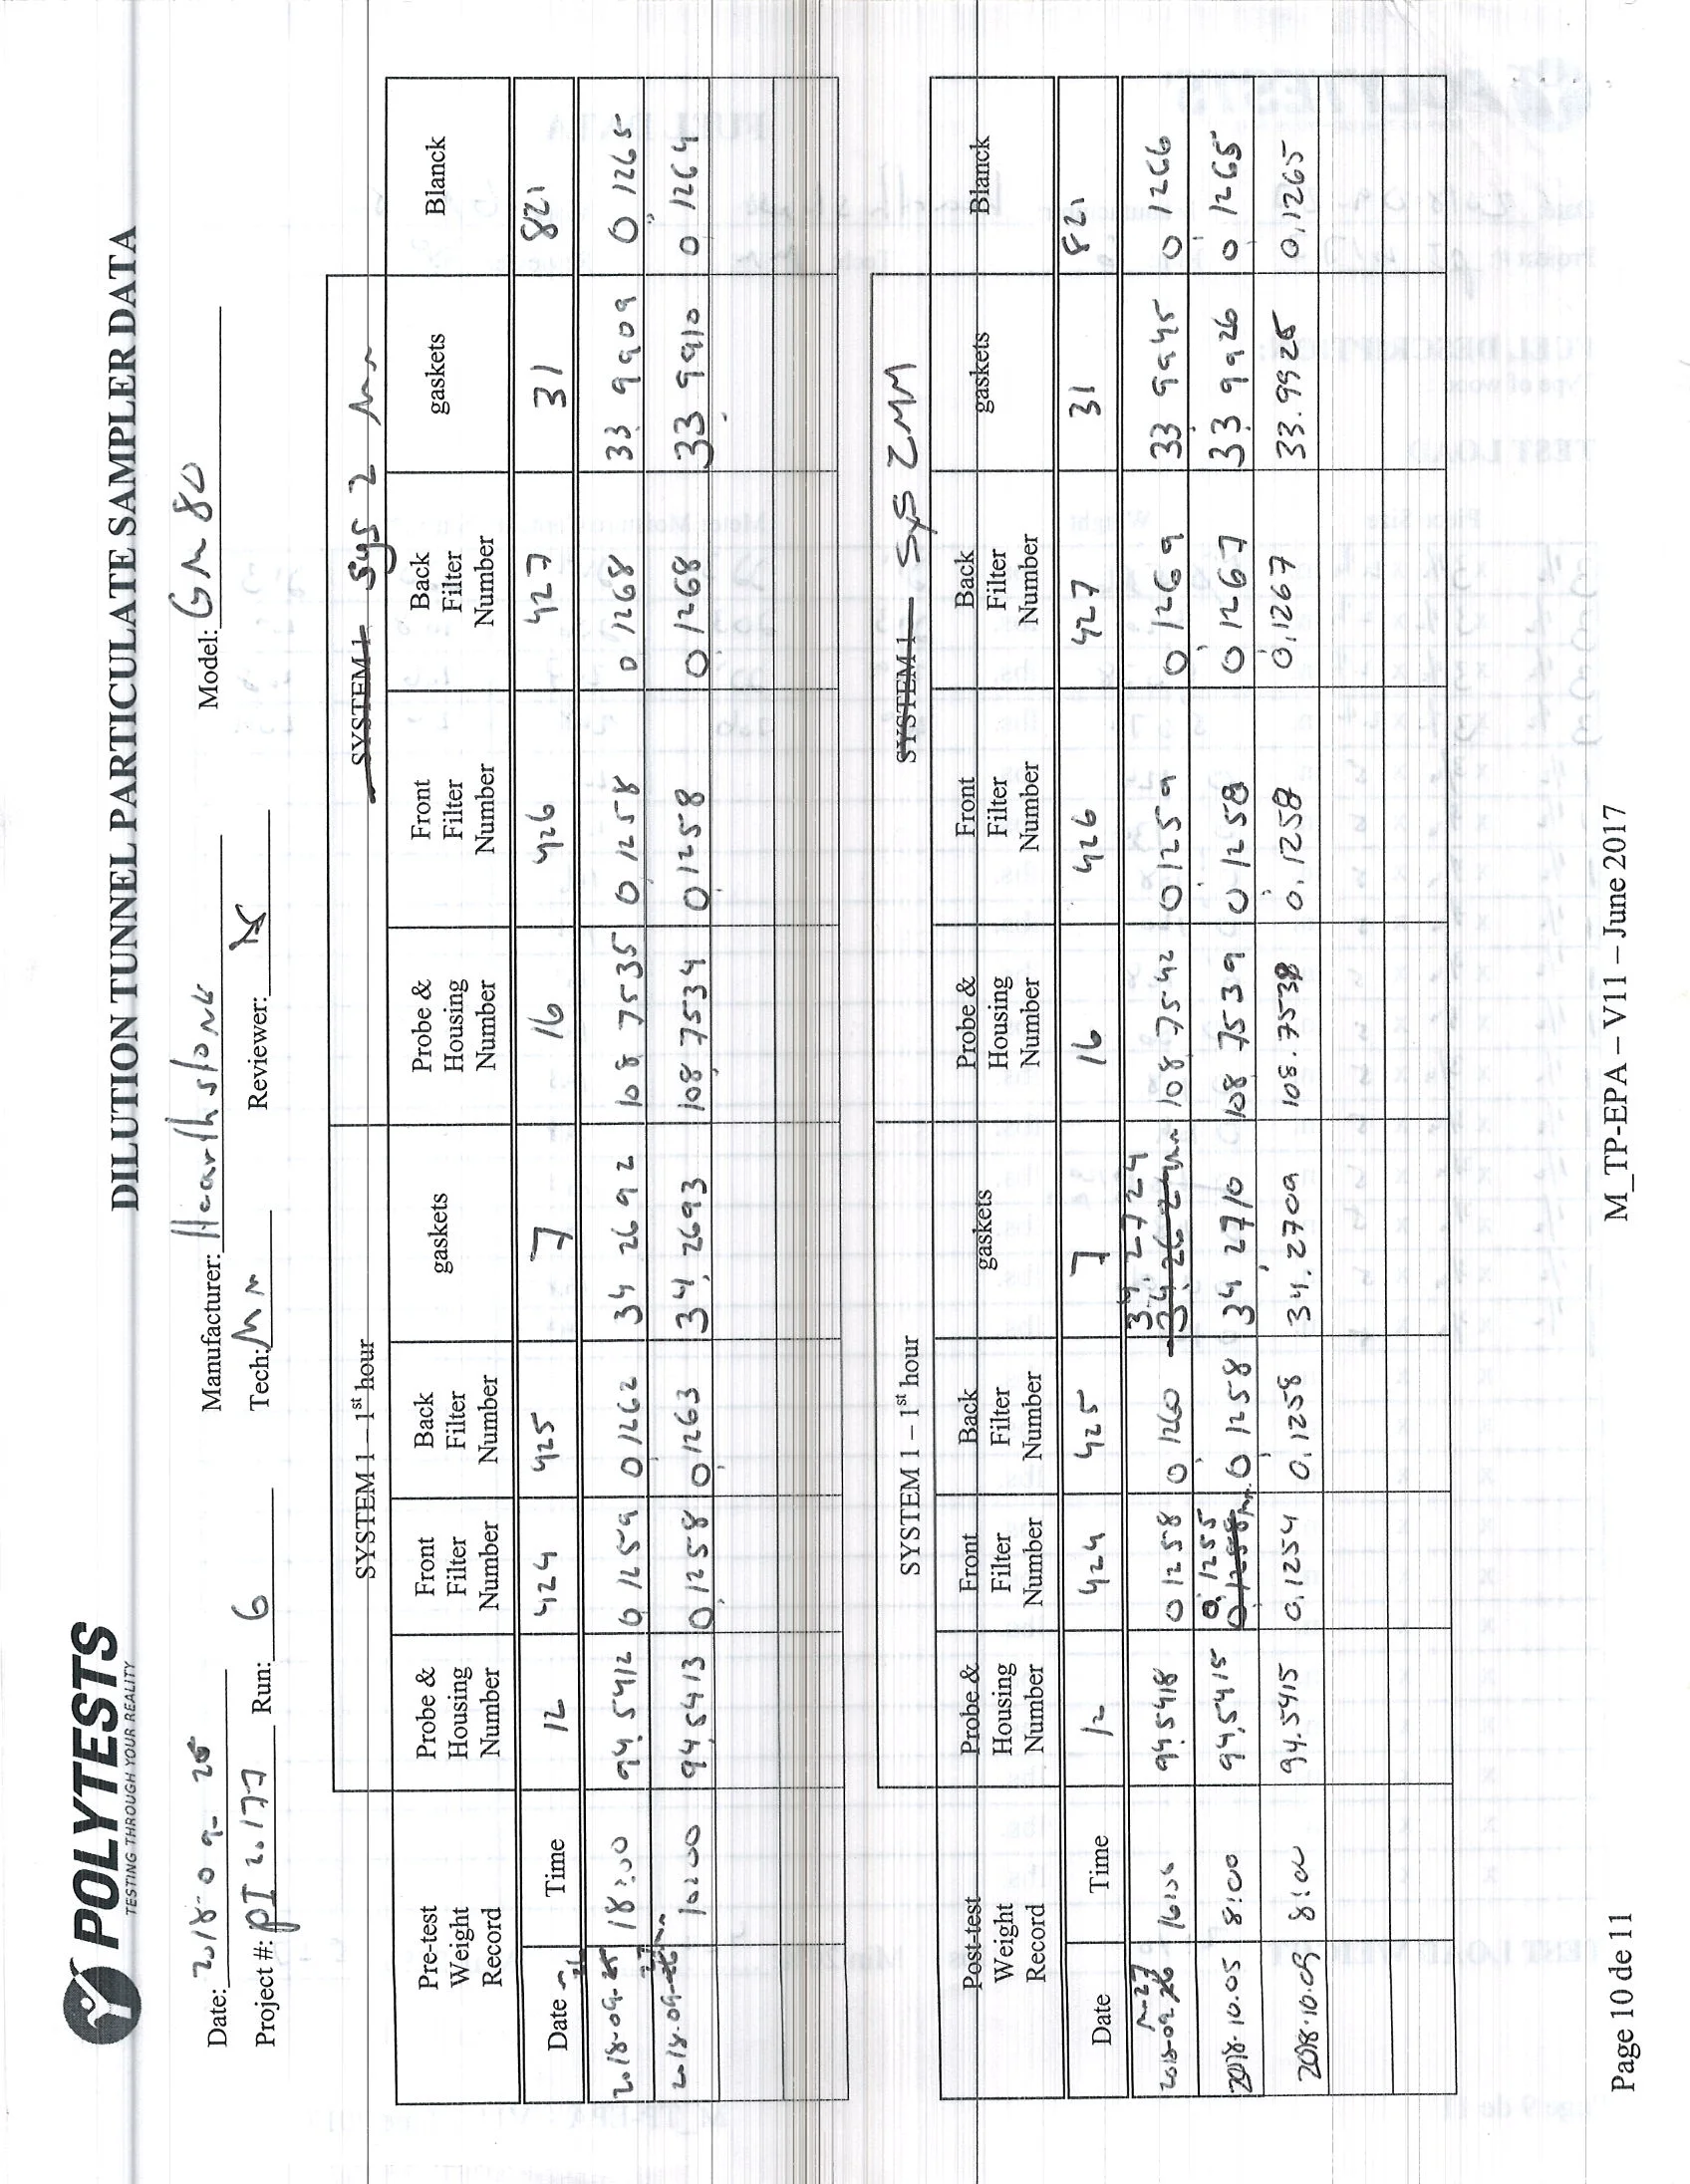 POLYTESTS
TESTING THROUGH YOUR REALITY
DILUTION TUNNEL PARTICULATE SAMPLER DATA
Date: 2018-09-25 Manufacturer: Hearthstone Model: GM 80
Project #: PI 20177 Run: 6 Tech: Mm Reviewer:
SYSTEM 1 – 1st hour SYSTEM 1 Sys 2
Pre-test Weight Record Probe & Housing Number Front Filter Number Back Filter Number gaskets Probe & Housing Number Front Filter Number Back Filter Number gaskets Blanck
Date Time 12 424 425 7 16 426 427 31 821
2018-09- 18:30 94.5412 0.1259 0.1262 34.2692 108.7535 0.1258 0.1268 33.9909 0.1265
2018-09- 10:00 94.5413 0.1258 0.1263 34.2693 108.7534 0.1258 0.1268 33.9910 0.1264
SYSTEM 1 – 1st hour SYSTEM 1 Sys 2 MM
Post-test Weight Record Probe & Housing Number Front Filter Number Back Filter Number gaskets Probe & Housing Number Front Filter Number Back Filter Number gaskets Blanck
Date Time 12 424 425 7 16 426 427 31 821
2018-09-27 16:30 94.5418 0.1258 0.1260 34.2724 108.7542 0.1259 0.1269 33.9945 0.1266
2018.10.05 8:00 94.5415 0.1255 0.1258 34.2710 108.7539 0.1258 0.1267 33.9926 0.1265
2018.10.09 8:00 94.5415 0.1254 0.1258 34.2709 108.7538 0.1258 0.1267 33.9925 0.1265
Page 10 de 11 M_TP-EPA – V11 – June 2017